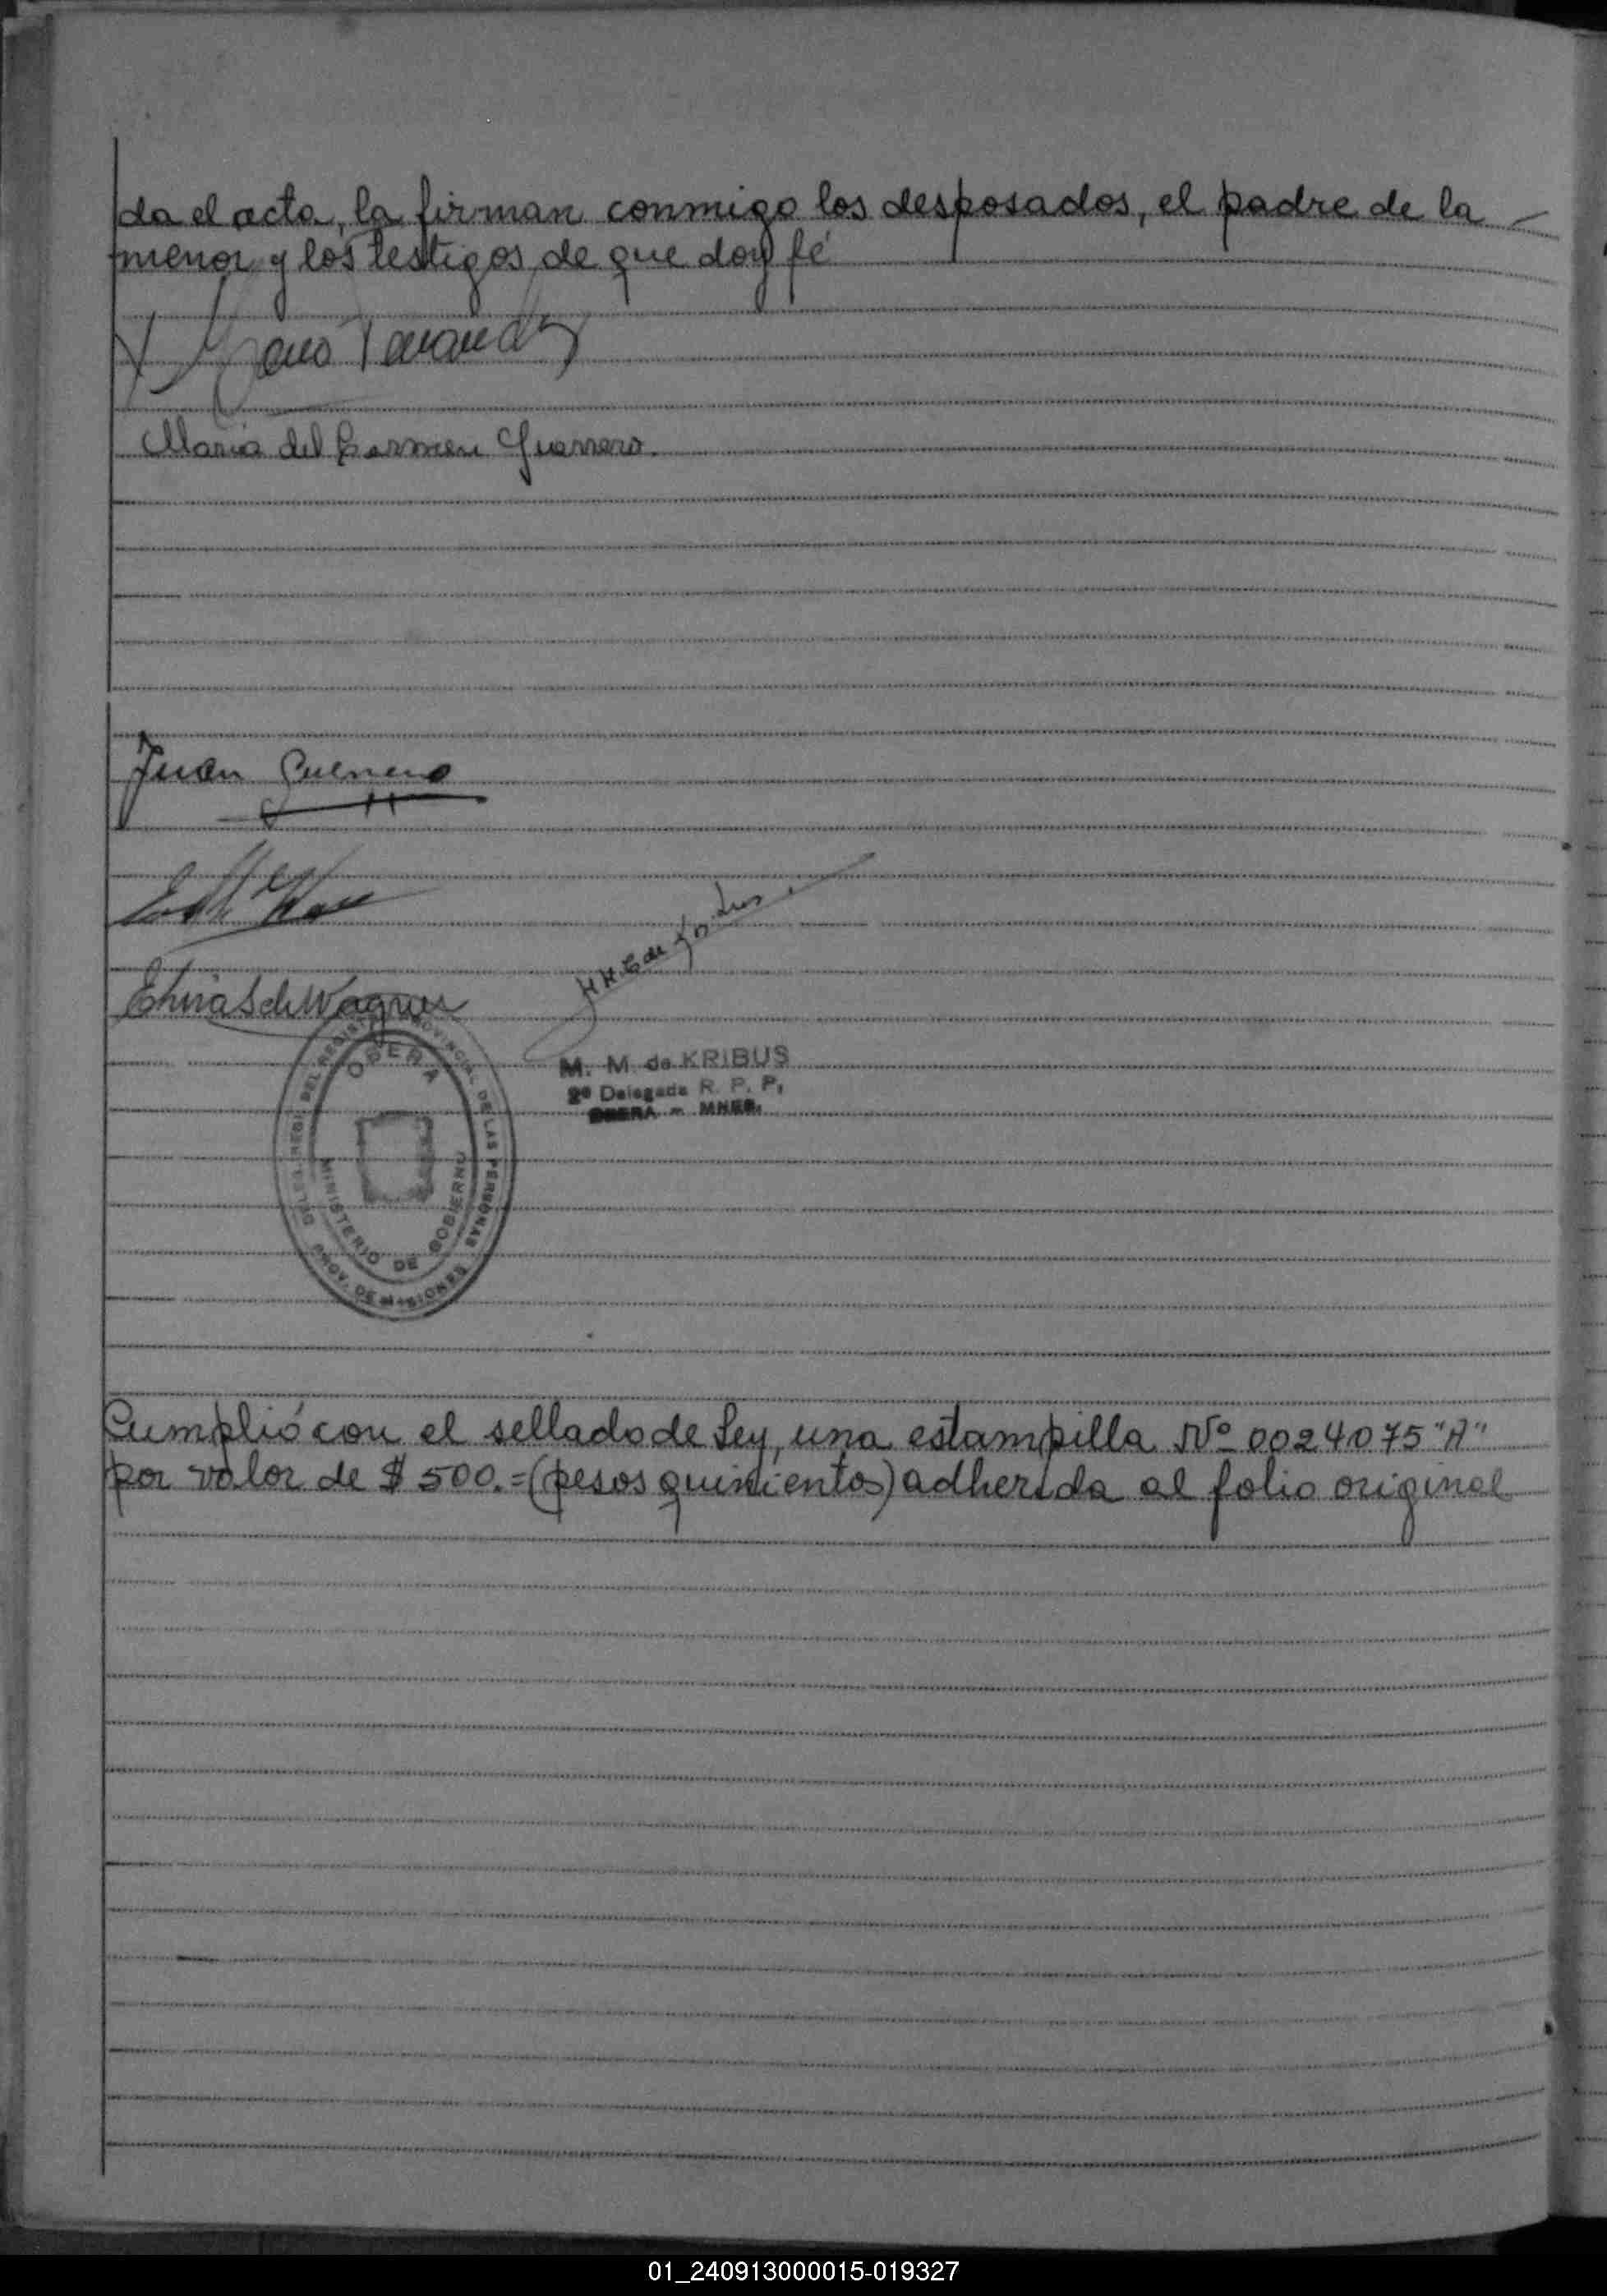 da el acta, la firman conmigo los desposados, el padre de la
menor y los testigos, de que doy fé
Maria del Carmen Guerrero.
Juan Guerrero
Wagner
M. M. de KRIBUS
2º Delegada R. P. P.
OBERA - MNES.
OBERA
DEL REGISTRO PROVINCIAL DE LAS PERSONAS
MINISTERIO DE GOBIERNO
PROV. DE MISIONES
Cumplió con el sellado de Ley, una estampilla Nº 0024075 "A"
por valor de $ 500.=(pesos quinientos) adherida al folio original
01_240913000015-019327